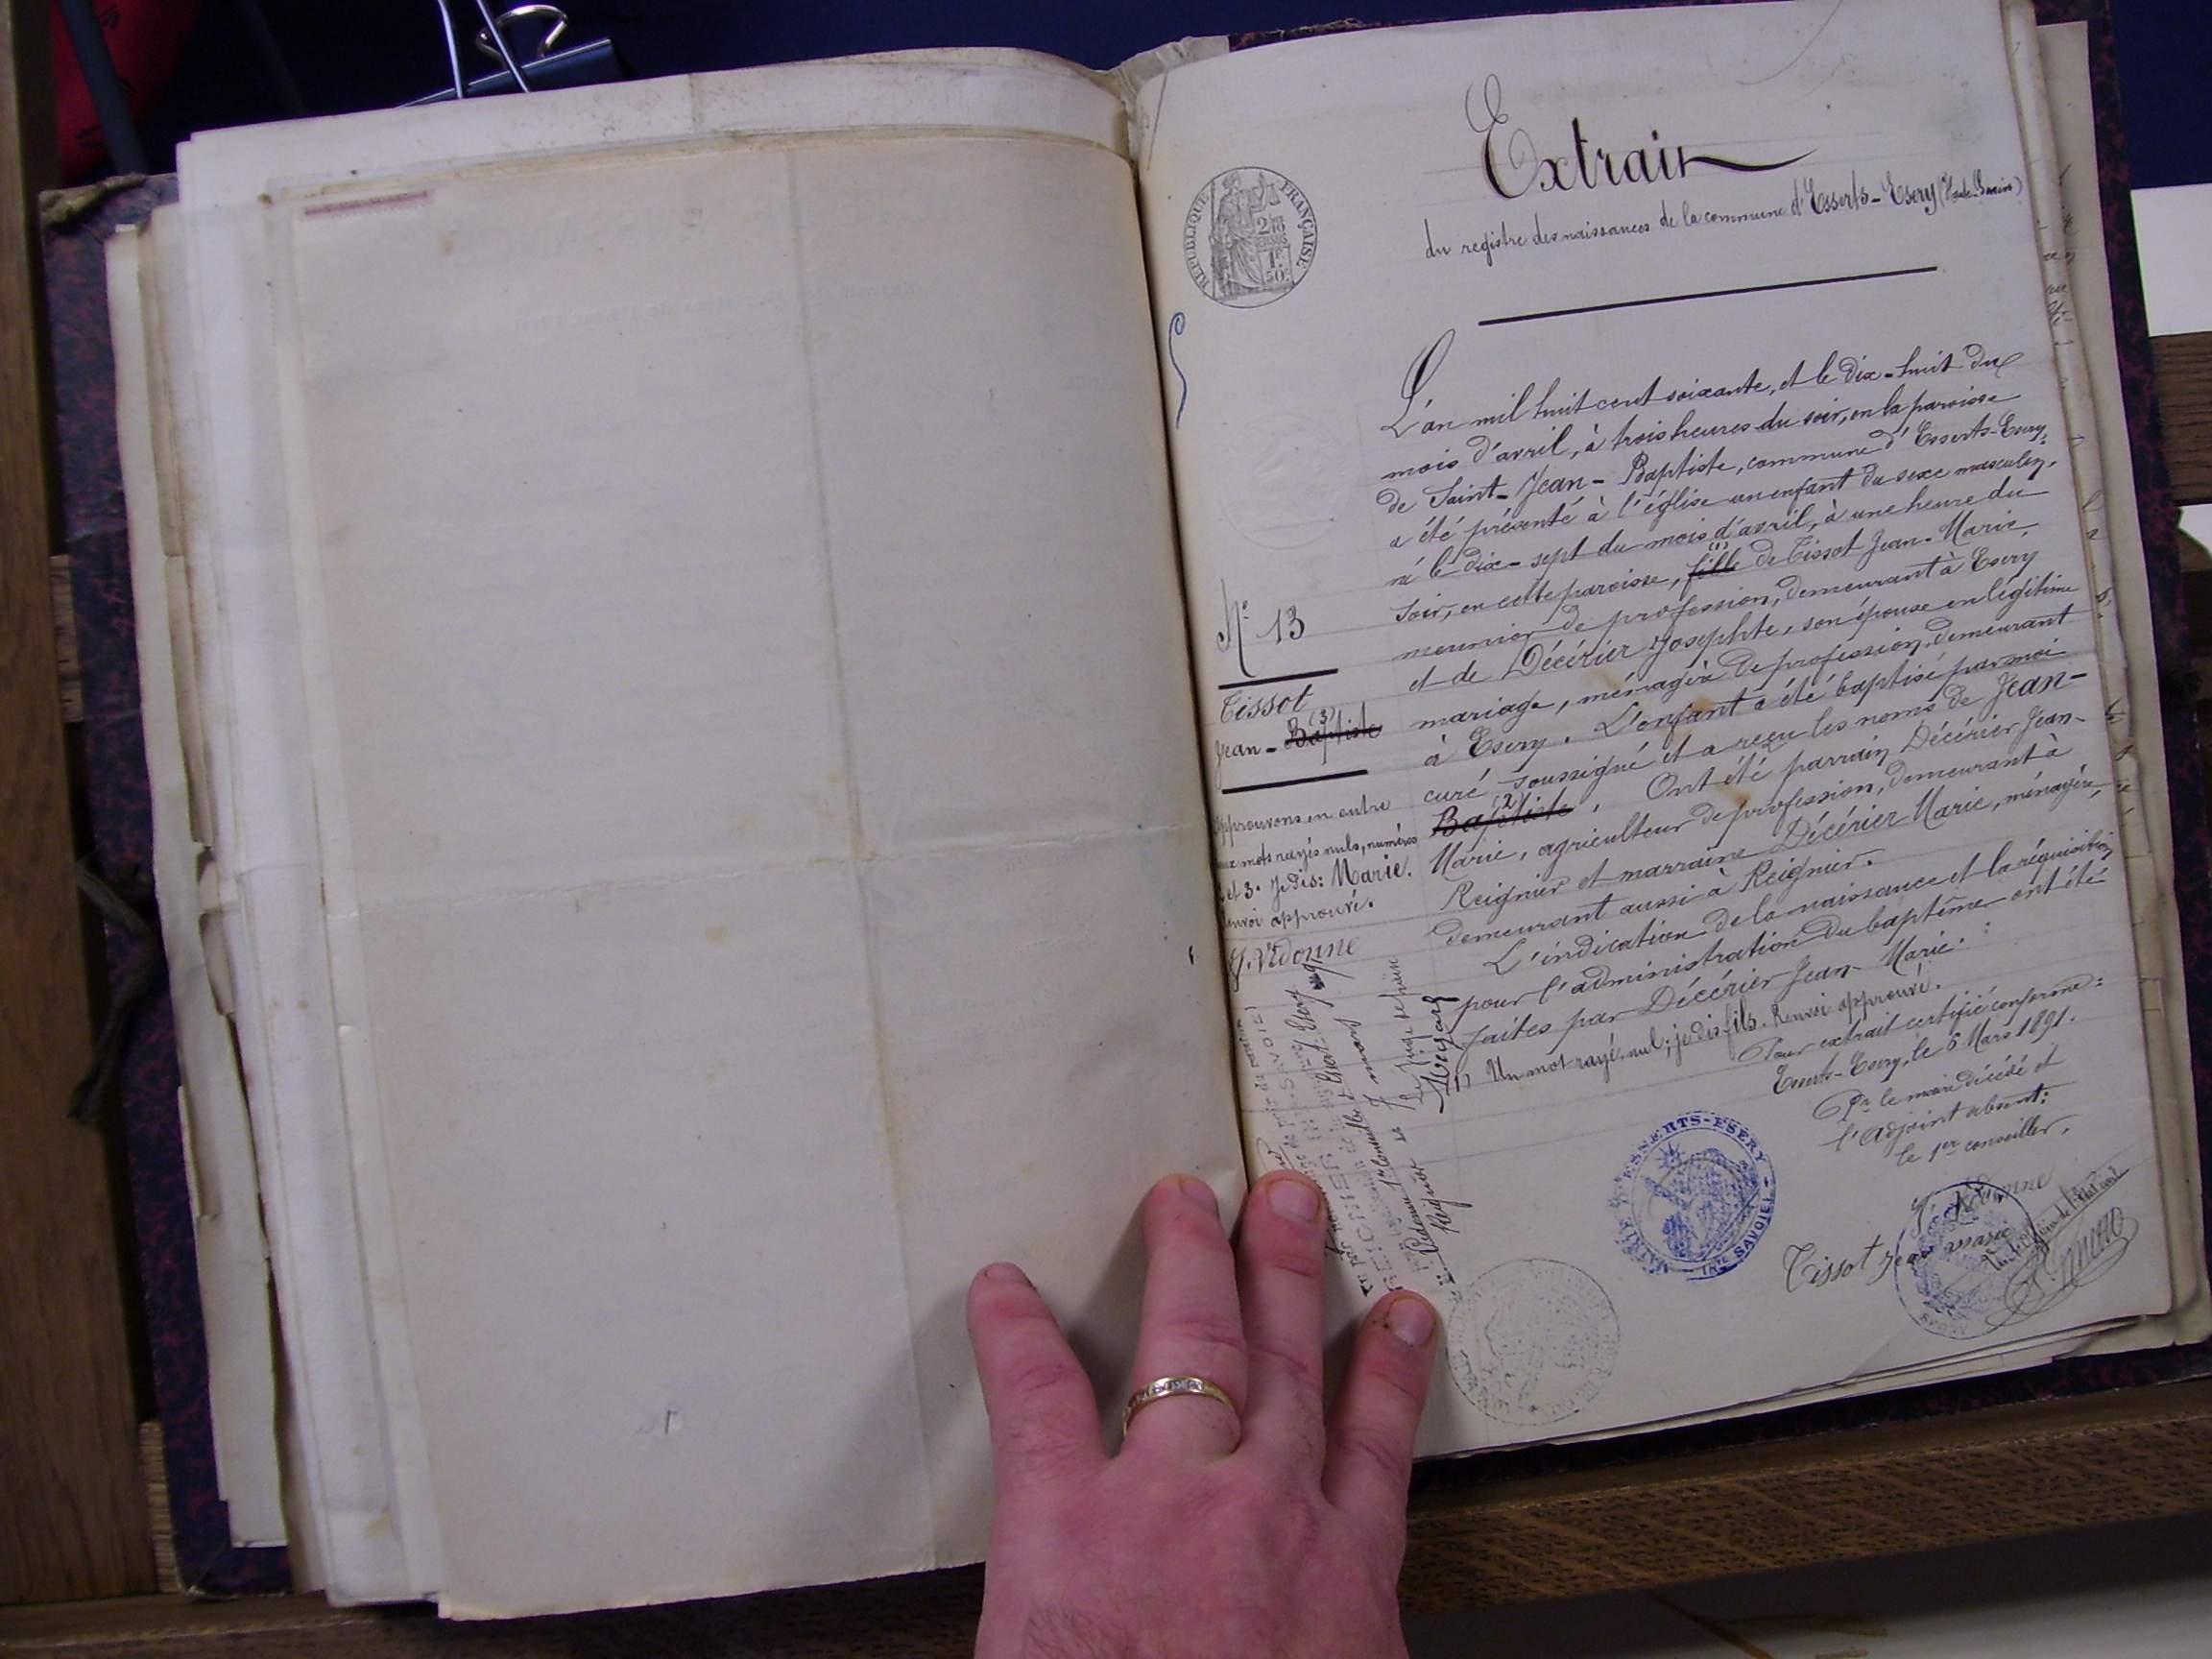 Extrait
du registre des naissances de la commune d'Esserts-Esery (Haute-Savoie)
RÉPUBLIQUE FRANÇAISE
2/10
1F
50c
L'an mil huit cent soixante, et le dix-huit du
mois d'avril, à trois heures du soir, en la paroisse
de Saint-Jean-Baptiste, commune d'Esserts-Esery,
a été présenté à l'église un enfant du sexe masculin,
né le dix-sept du mois d'avril, à une heure du
soir, en cette paroisse, fille (1) de Tissot Jean-Marie,
meunier de profession, demeurant à Esery
et de Décérier Josephte, son épouse en légitime
mariage, ménagère de profession, demeurant
à Esery. L'enfant a été baptisé par moi
curé soussigné et a reçu les noms de Jean-
Baptiste (2). Ont été parrain Décérier Jean-
Marie, agriculteur de profession, demeurant à
Reignier et marraine Décérier Marie, ménagère,
demeurant aussi à Reignier.
L'indication de la naissance et la réquisition
pour l'administration du baptême ont été
faites par Décérier Jean-Marie.
(1) Un mot rayé nul; je dis fils. Renvoi approuvé.
Pour extrait certifié conforme:
Esserts-Esery, le 6 Mars 1891.
Pr le maire décédé et
l'adjoint absent:
le 1er conseiller,
J. Vidonne
Tissot Jean Marie
MAIRIE D'ESSERTS-ESERY
(HTE SAVOIE)
N° 13
Tissot
Jean-Baptiste (3)
approuvons en outre
deux mots rayés nuls, numéros
2 et 3. Je dis: Marie.
Renvoi approuvé.
J. Vidonne
Le Juge de paix